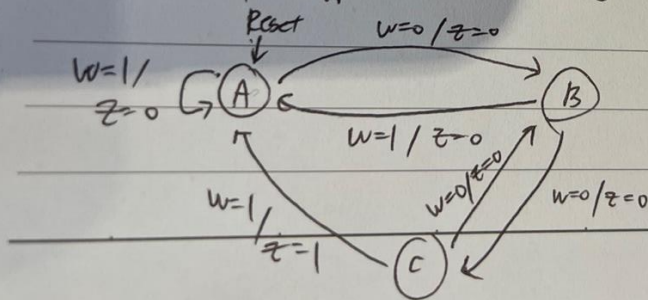 Reset
W=0/Z=0
W=1/
Z=0
A
B
W=1/Z=0
W=0/Z=0
W=0/Z=0
W=1/
Z=1
C